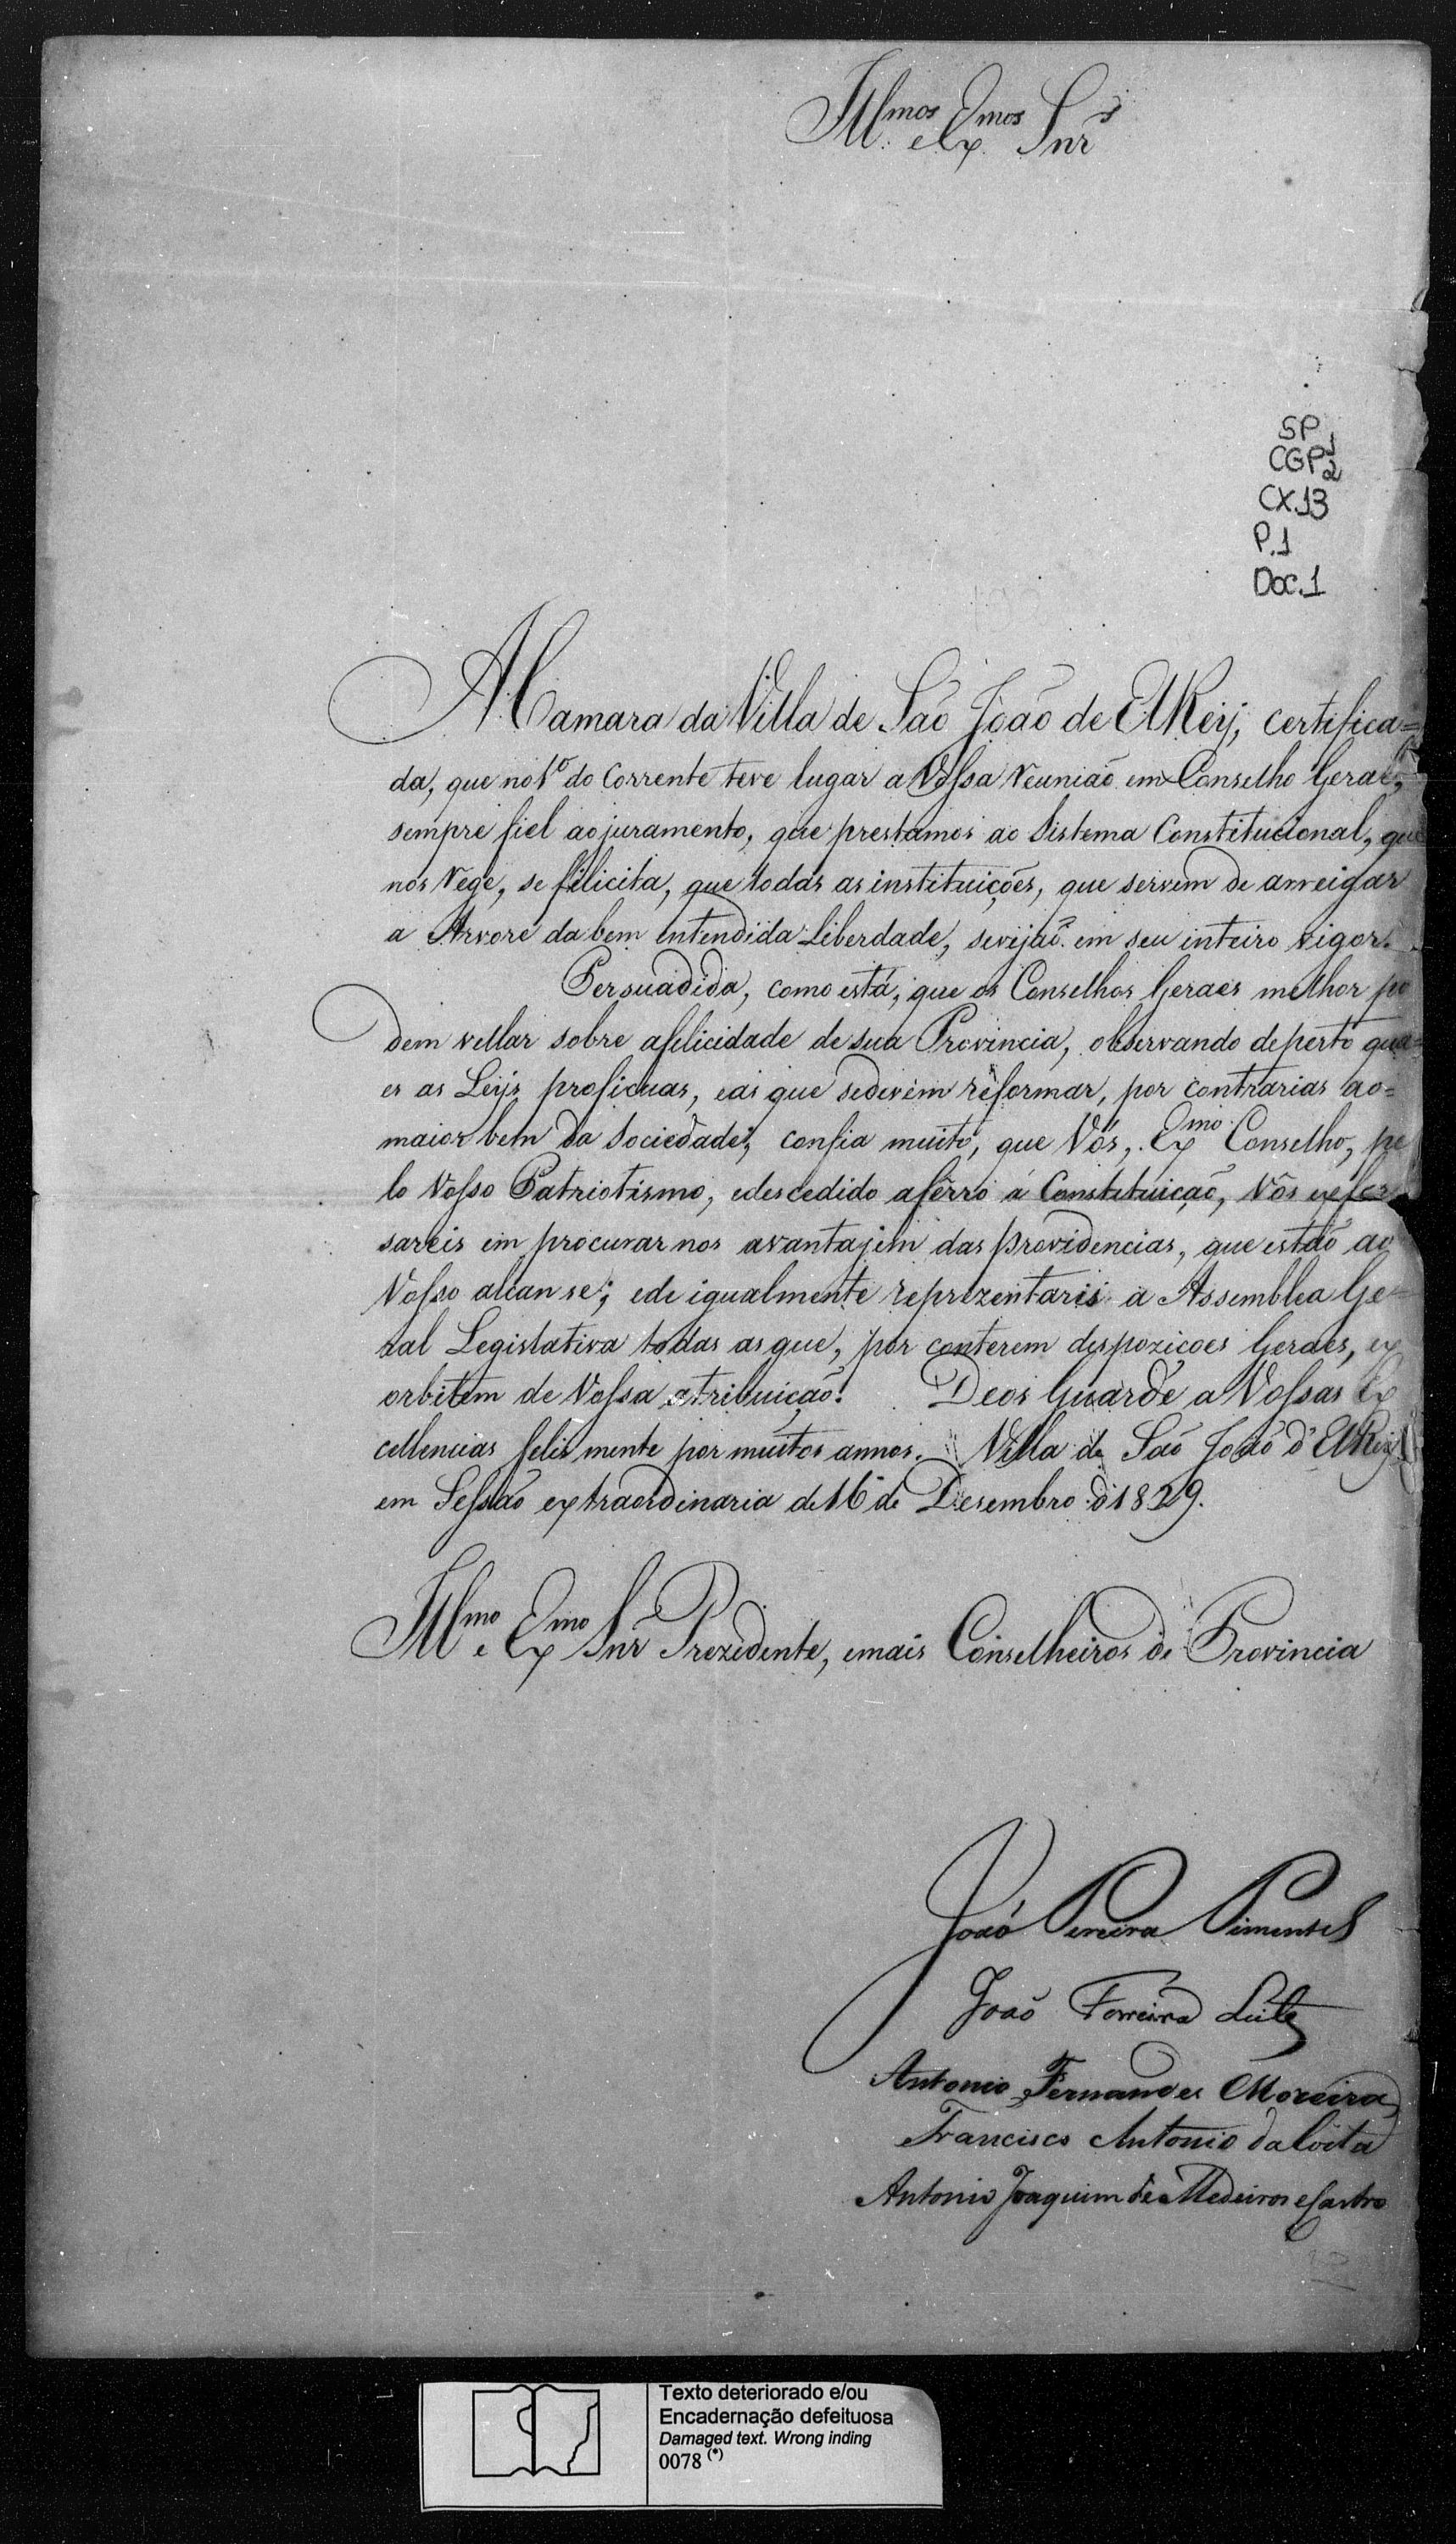 Illmos e Exmos Snrs
SP1
CGP2
CX.13
P.1
Doc.1
A Camara da Villa de São João de ElReij, certifica=
da, que no 1º do Corrente teve lugar a Vossa reunião em Conselho Geral,
sempre fiel ao juramento, que prestamos ao Sistema Constitucional, que
nos rege, se filicita, que todas as instituições, que servem de arreigar
a Arvore da bem entendida Liberdade, sevejão em seu inteiro vigor.
Persuadida, como está, que os Conselhos Geraes melhor po
dem vellar sobre afelicidade de sua Provincia, observando deperto qua=
es as Leijs proficuas, eas que sedevem reformar, por contrarias ao=
maior bem da Sociedade; confia muito, que Vós, Exmo Conselho, pe
lo Vosso Patriotismo, edescedido afêrro á Constetuição, Vós exfor
sareis em procurar nos avantajem das providencias, que estão ao
Vosso alcanse; ede igualmente reprezentaris a Assemblea Ge=
ral Legislativa todas as que, por conterem despozicoes Geraes, ex
orbitem de Vossa atribuição. Deos Guarde a Vossas Ex
cellencias felis mente por muitos annos. Villa de São João d'ElReij
em Sessão extraordinaria de 16 de Desembro d 1829.
Illmo e Exmo Snr Prezidente, emais Conselheiros de Provincia
João Pereira Pimentel
João Ferreira Leite
Antonio Fernandes Moreira
Francisco Antonio da Costa
Antonio Joaquim de Medeiros e Castro
Texto deteriorado e/ou
Encadernação defeituosa
Damaged text. Wrong inding
0078 (*)